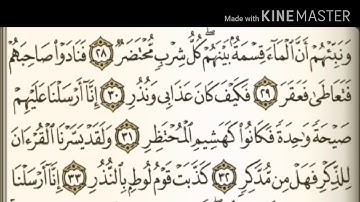 Made with KINEMASTER
وَنَبِّئْهُمْ أَنَّ ٱلْمَآءَ قِسْمَةٌۢ بَيْنَهُمْ ۖ كُلُّ شِرْبٍ مُّحْتَضَرٌ ٢٨ فَنَادَوْا۟ صَاحِبَهُمْ
فَتَعَاطَىٰ فَعَقَرَ ٢٩ فَكَيْفَ كَانَ عَذَابِى وَنُذُرِ ٣٠ إِنَّآ أَرْسَلْنَا عَلَيْهِمْ
صَيْحَةً وَٰحِدَةً فَكَانُوا۟ كَهَشِيمِ ٱلْمُحْتَظِرِ ٣١ وَلَقَدْ يَسَّرْنَا ٱلْقُرْءَانَ
لِلذِّكْرِ فَهَلْ مِن مُّدَّكِرٍ ٣٢ كَذَّبَتْ قَوْمُ لُوطٍۭ بِٱلنُّذُرِ ٣٣ إِنَّآ أَرْسَلْنَا